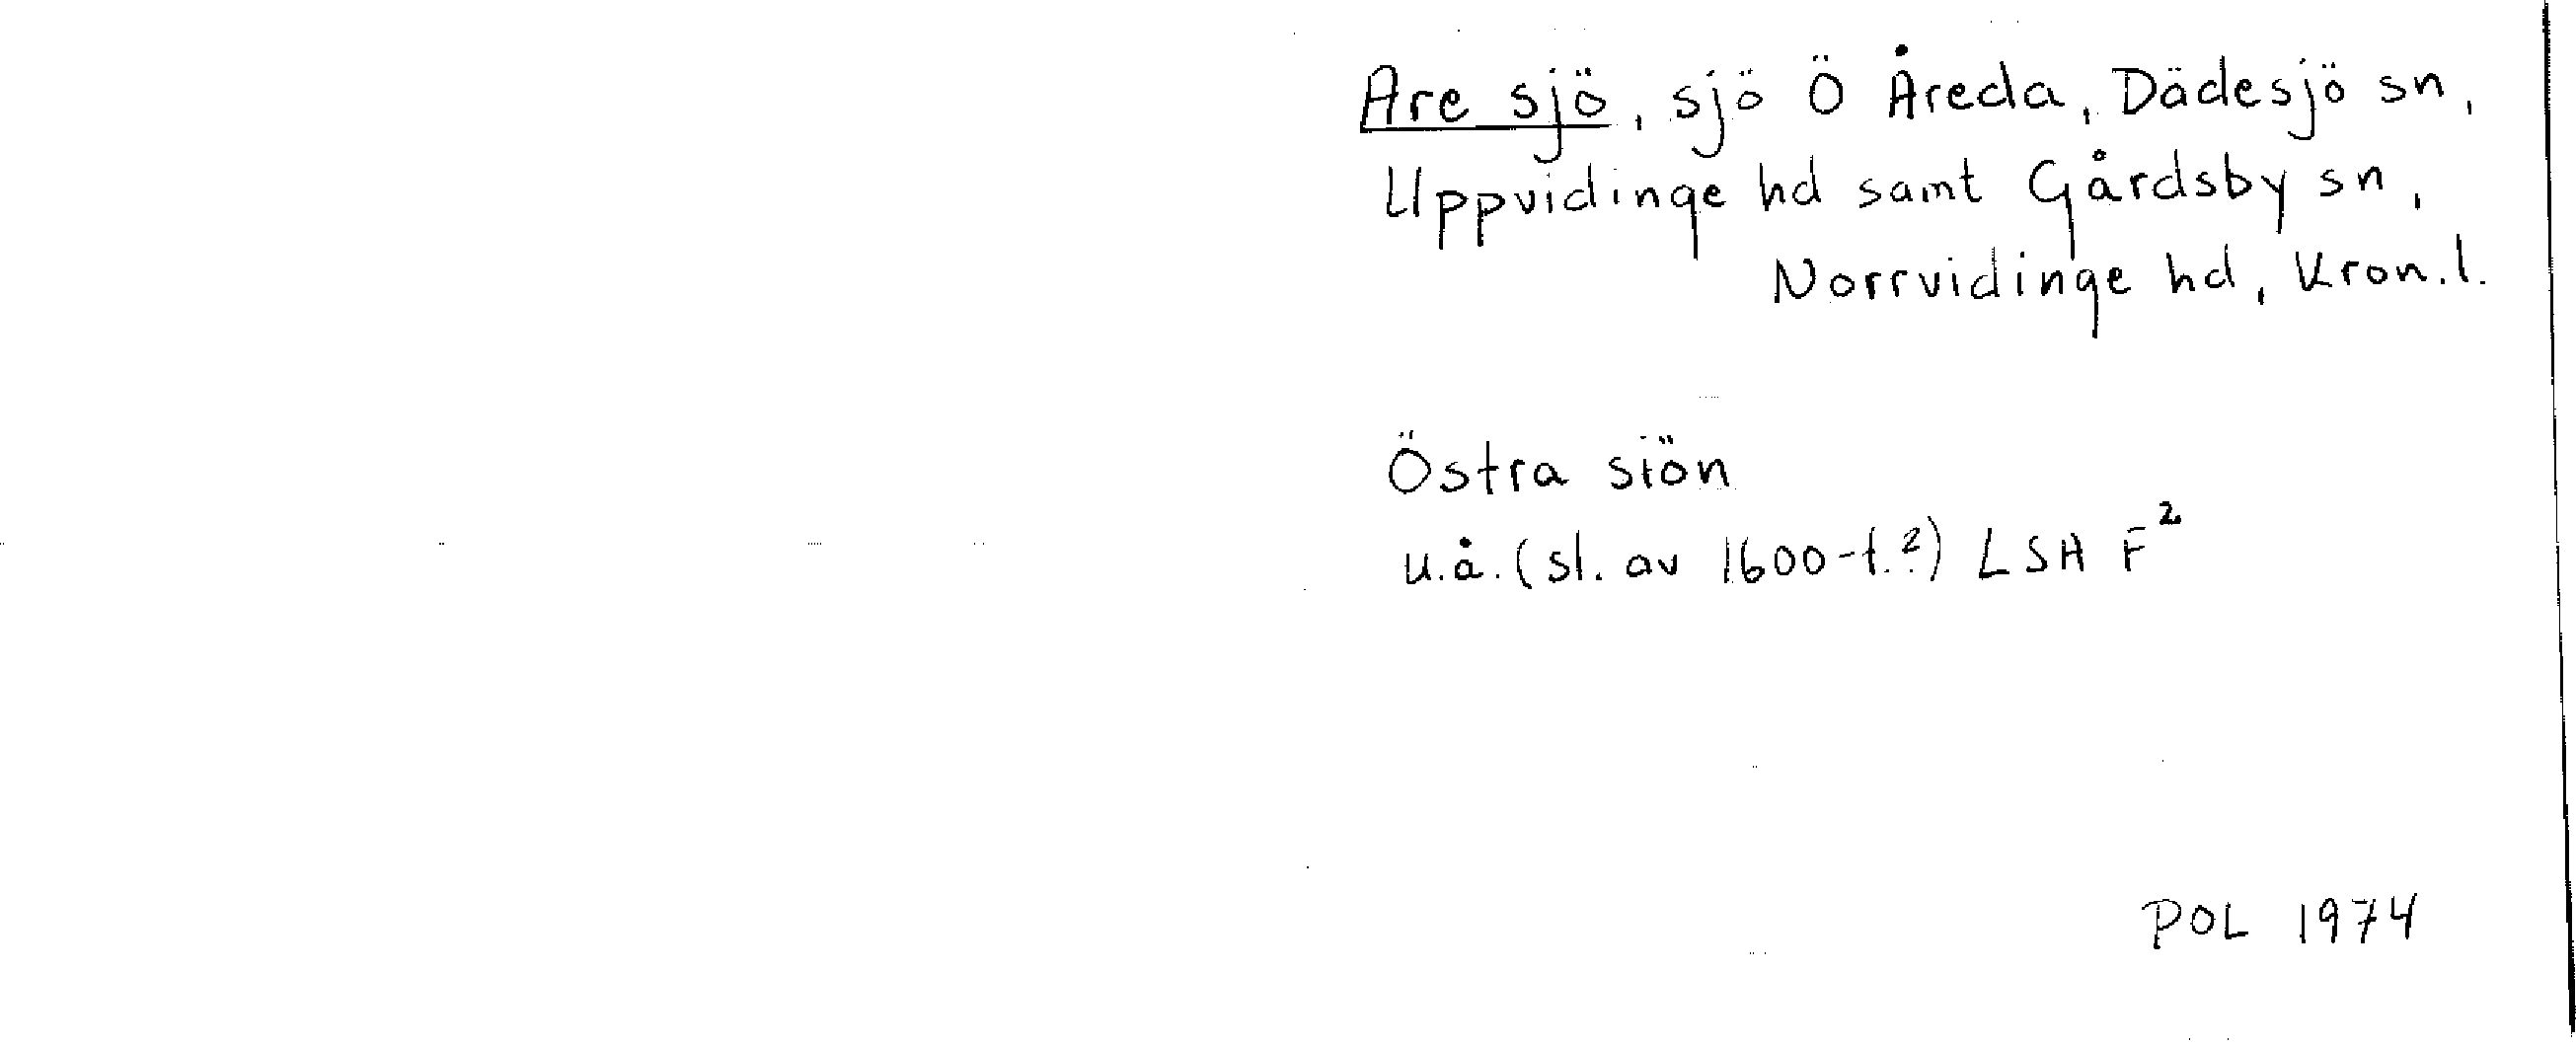 Are sjö, sjö Ö Åreda, Dädesjö sn,
Uppvidinge hd samt Gårdsby sn,
Norrvidinge hd, Kron.l.
Östra siön
u.å. (sl. av 1600-t.?) LSA F²
POL 1974